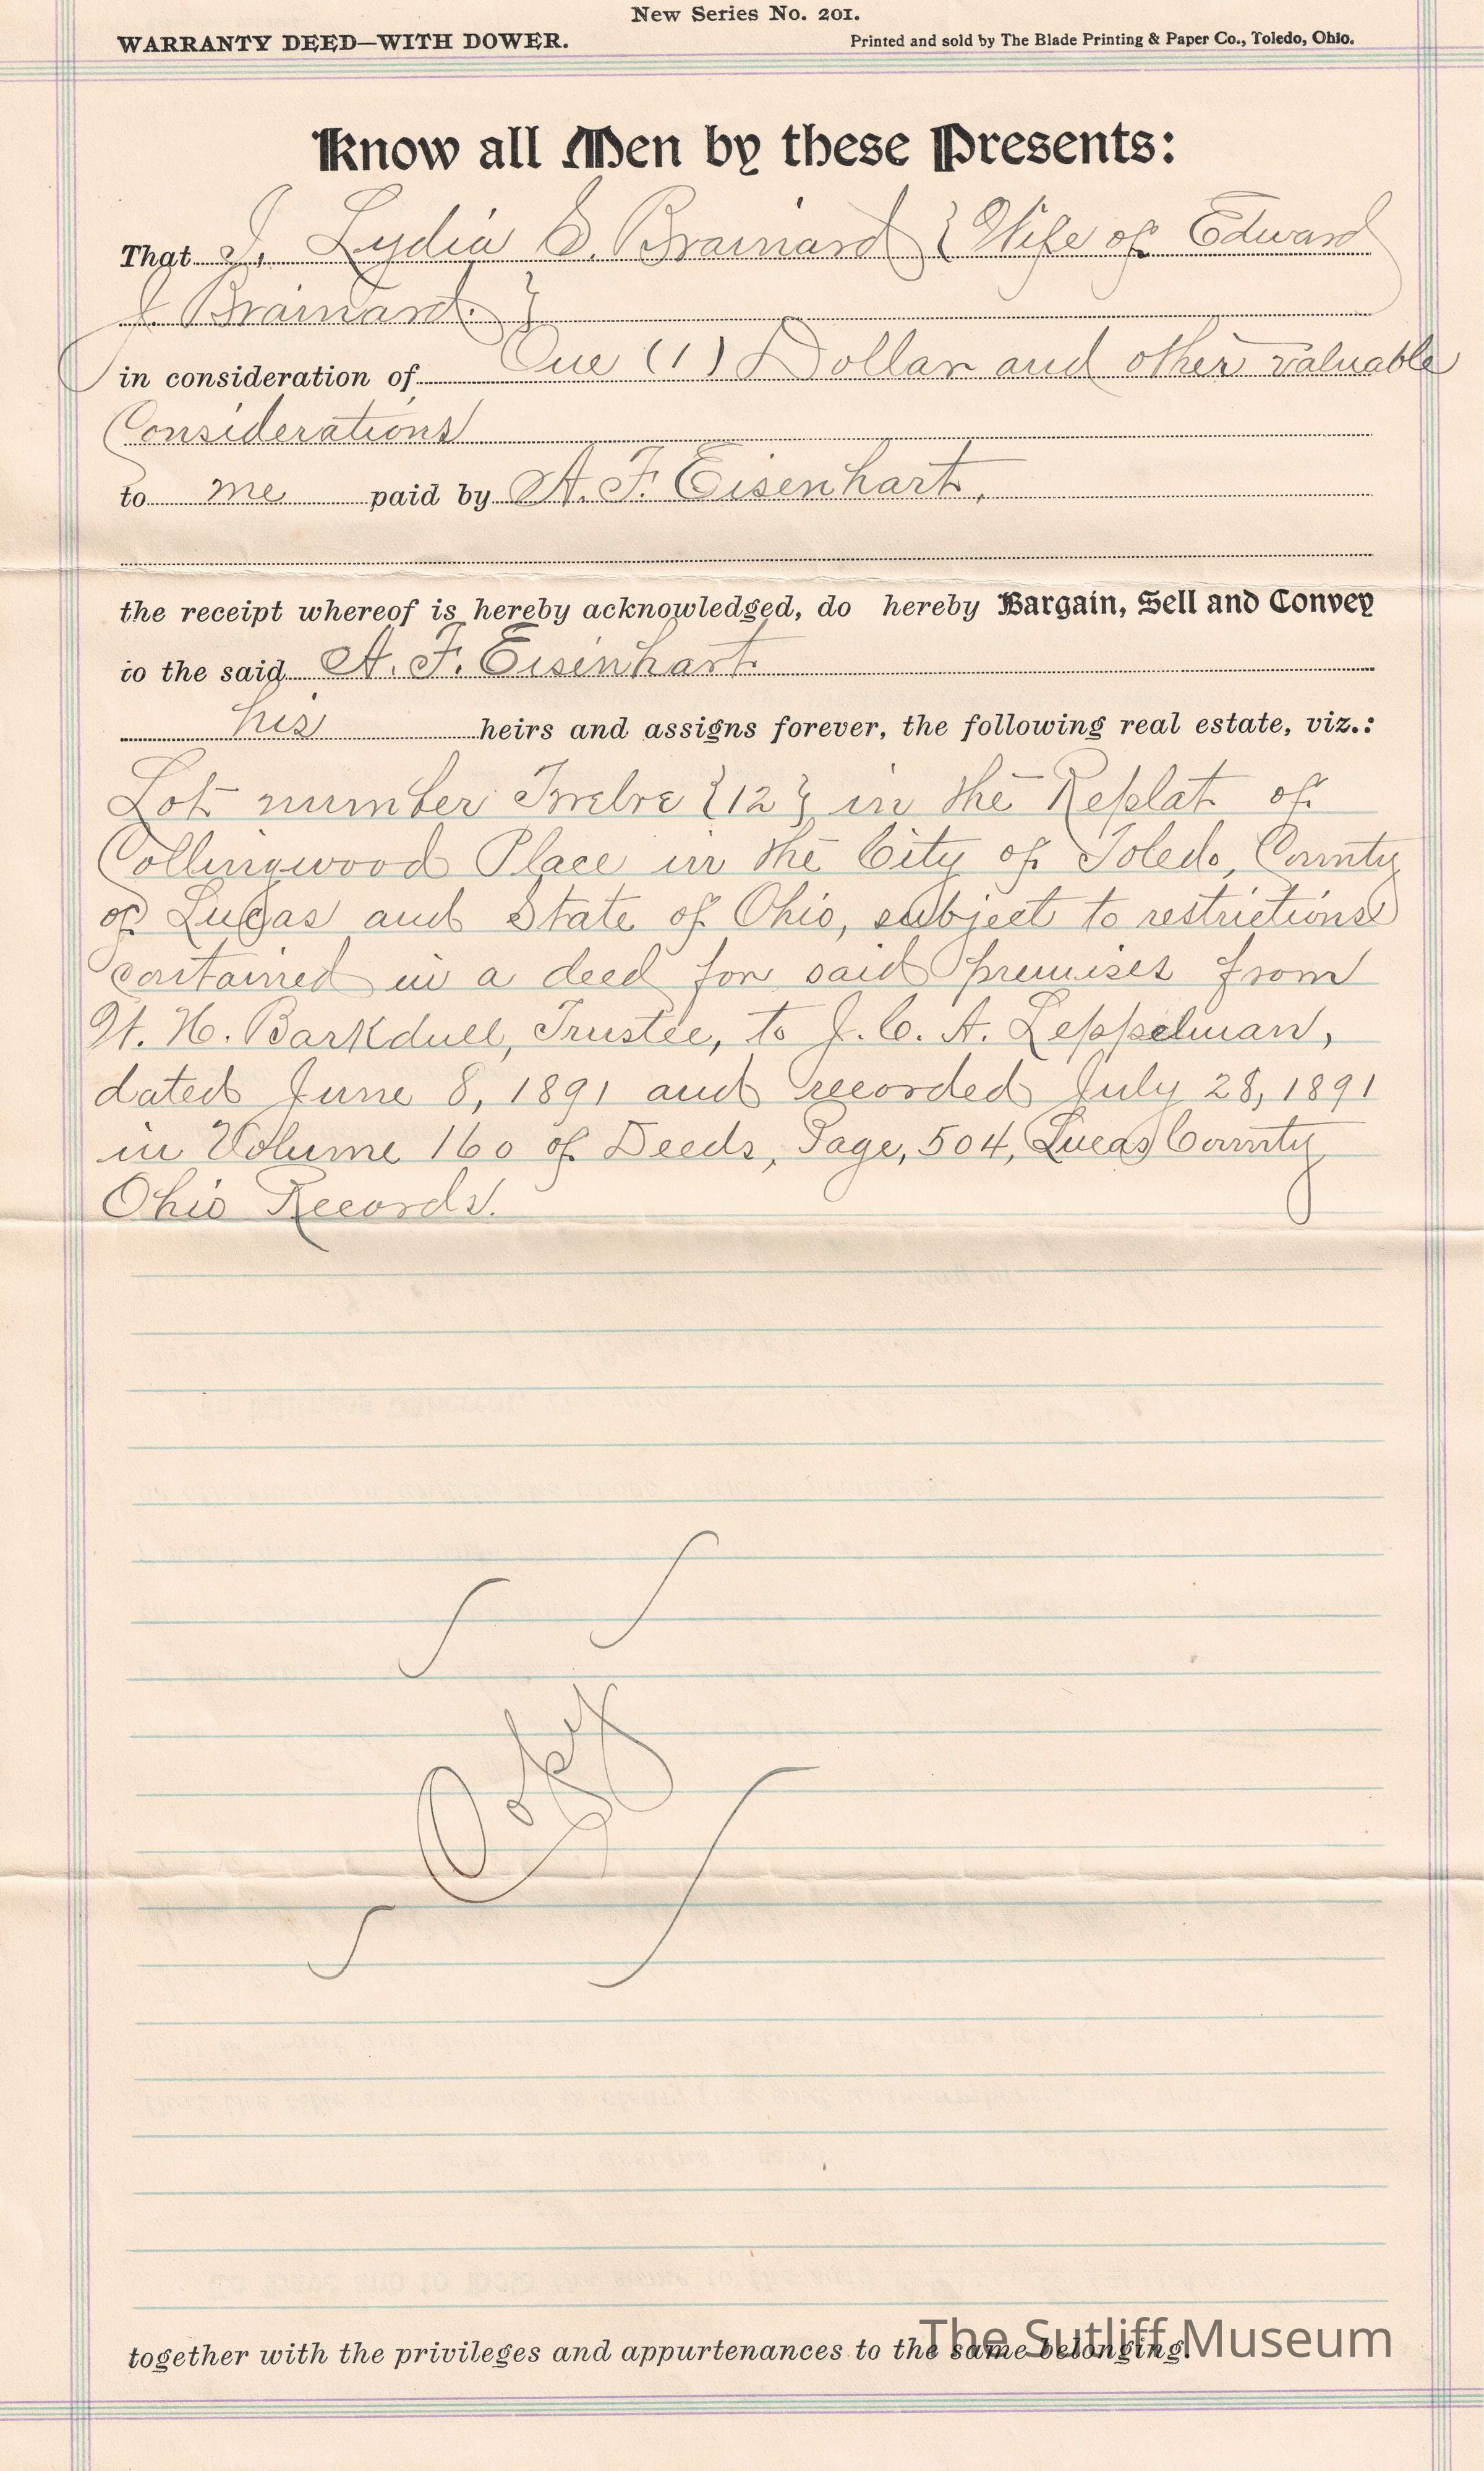 New Series No. 201.
WARRANTY DEED—WITH DOWER. Printed and sold by The Blade Printing & Paper Co., Toledo, Ohio.
Know all Men by these Presents:
That I, Lydia S. Brainard {Wife of Edward
J. Brainard.}
in consideration of One (1) Dollar and other valuable
Considerations
to me paid by A. F. Eisenhart,
the receipt whereof is hereby acknowledged, do hereby Bargain, Sell and Convey
to the said A. F. Eisenhart
his heirs and assigns forever, the following real estate, viz.:
Lot number Twelve {12} in the Replat of
Collingwood Place in the City of Toledo, County
of Lucas and State of Ohio, subject to restrictions
contained in a deed for said premises from
W. H. Barkdull, Trustee, to J. C. A. Leppelman,
dated June 8, 1891 and recorded July 28, 1891
in Volume 160 of Deeds, Page, 504, Lucas County
Ohio Records.
Copy
together with the privileges and appurtenances to the same belonging.
The Sutliff Museum